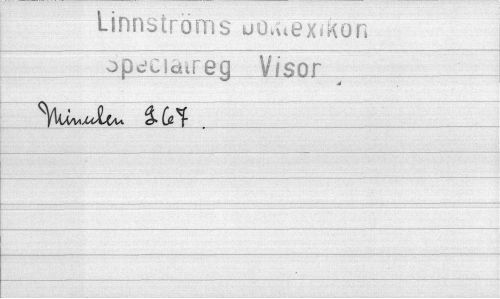 Linnströms Boklexikon
Specialreg Visor
967.